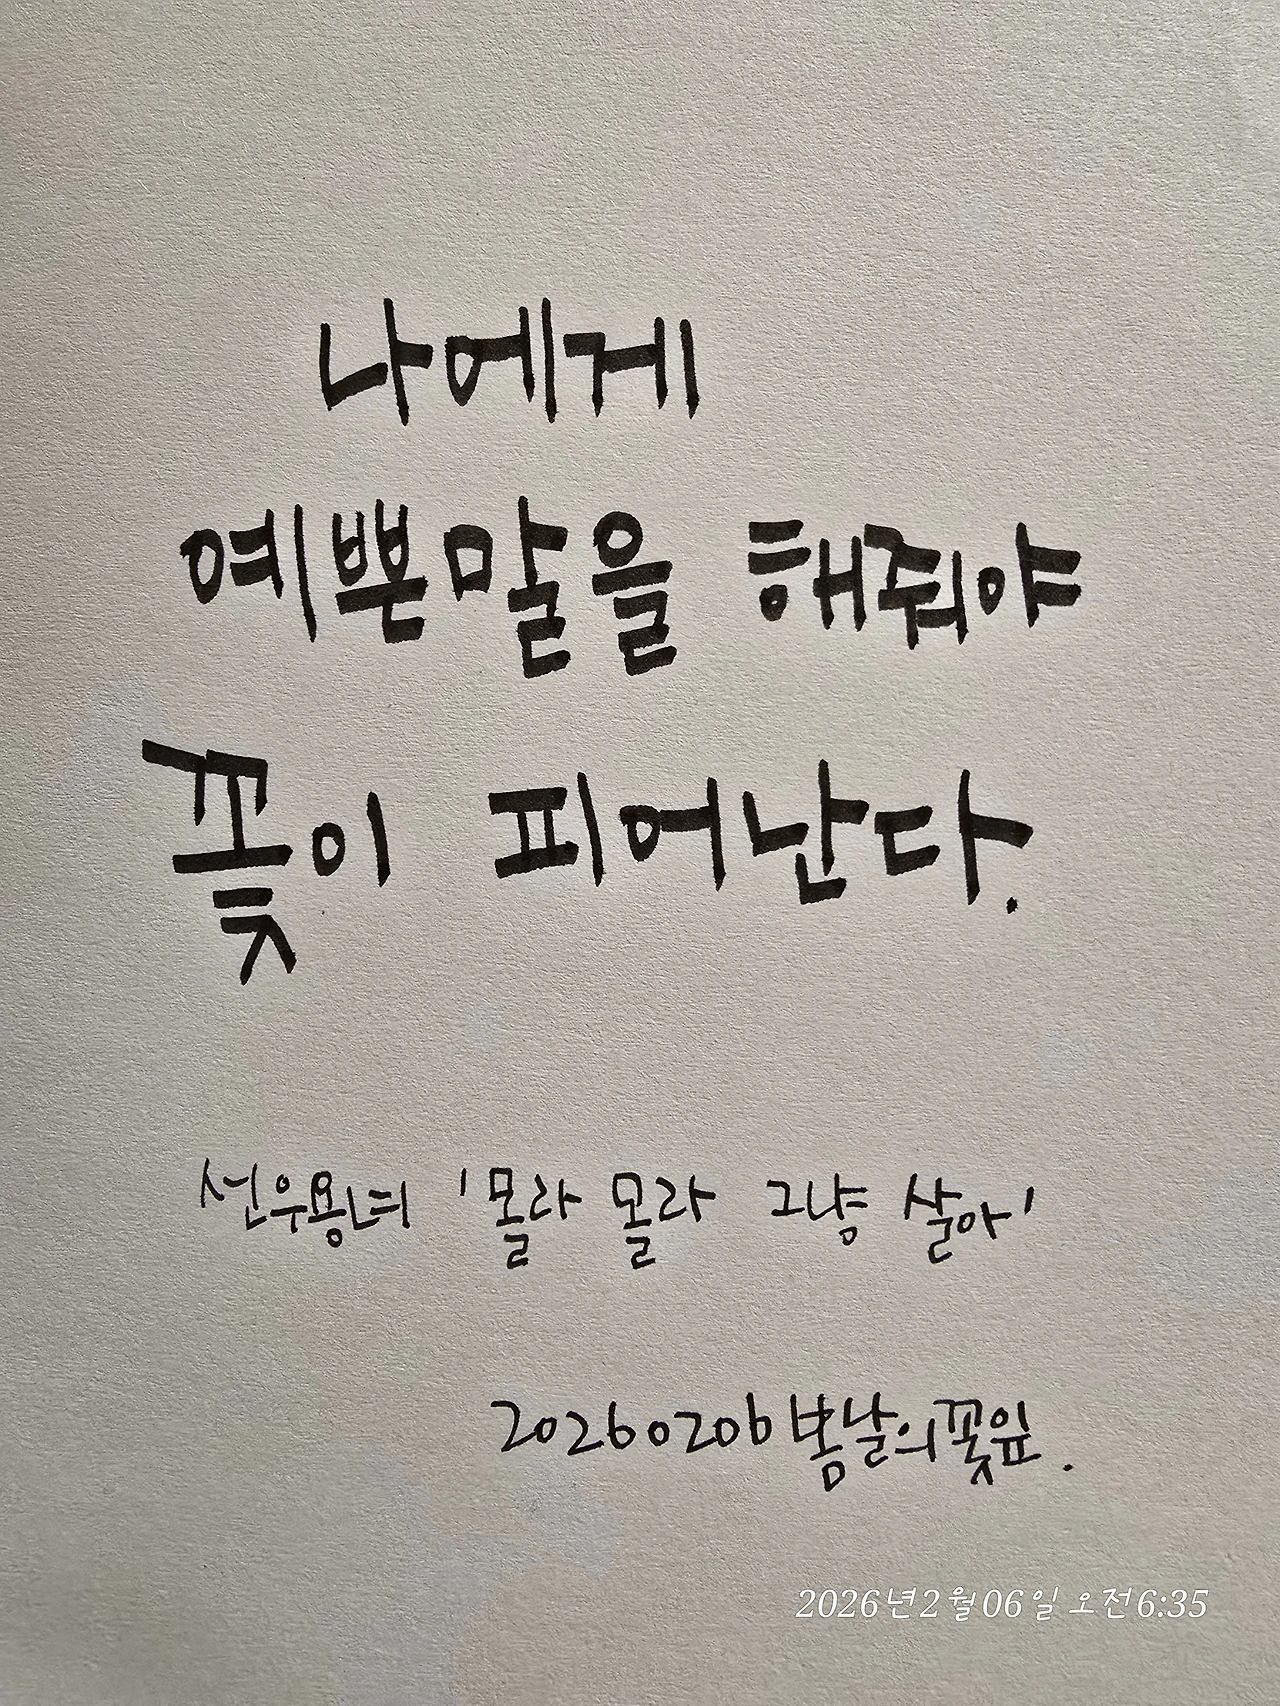 나에게
예쁜말을 해줘야
꽃이 피어난다.
선우용녀 '몰라 몰라 그냥 살아'
20260206 봄날의꽃잎.
2026년 2월 06일 오전 6:35